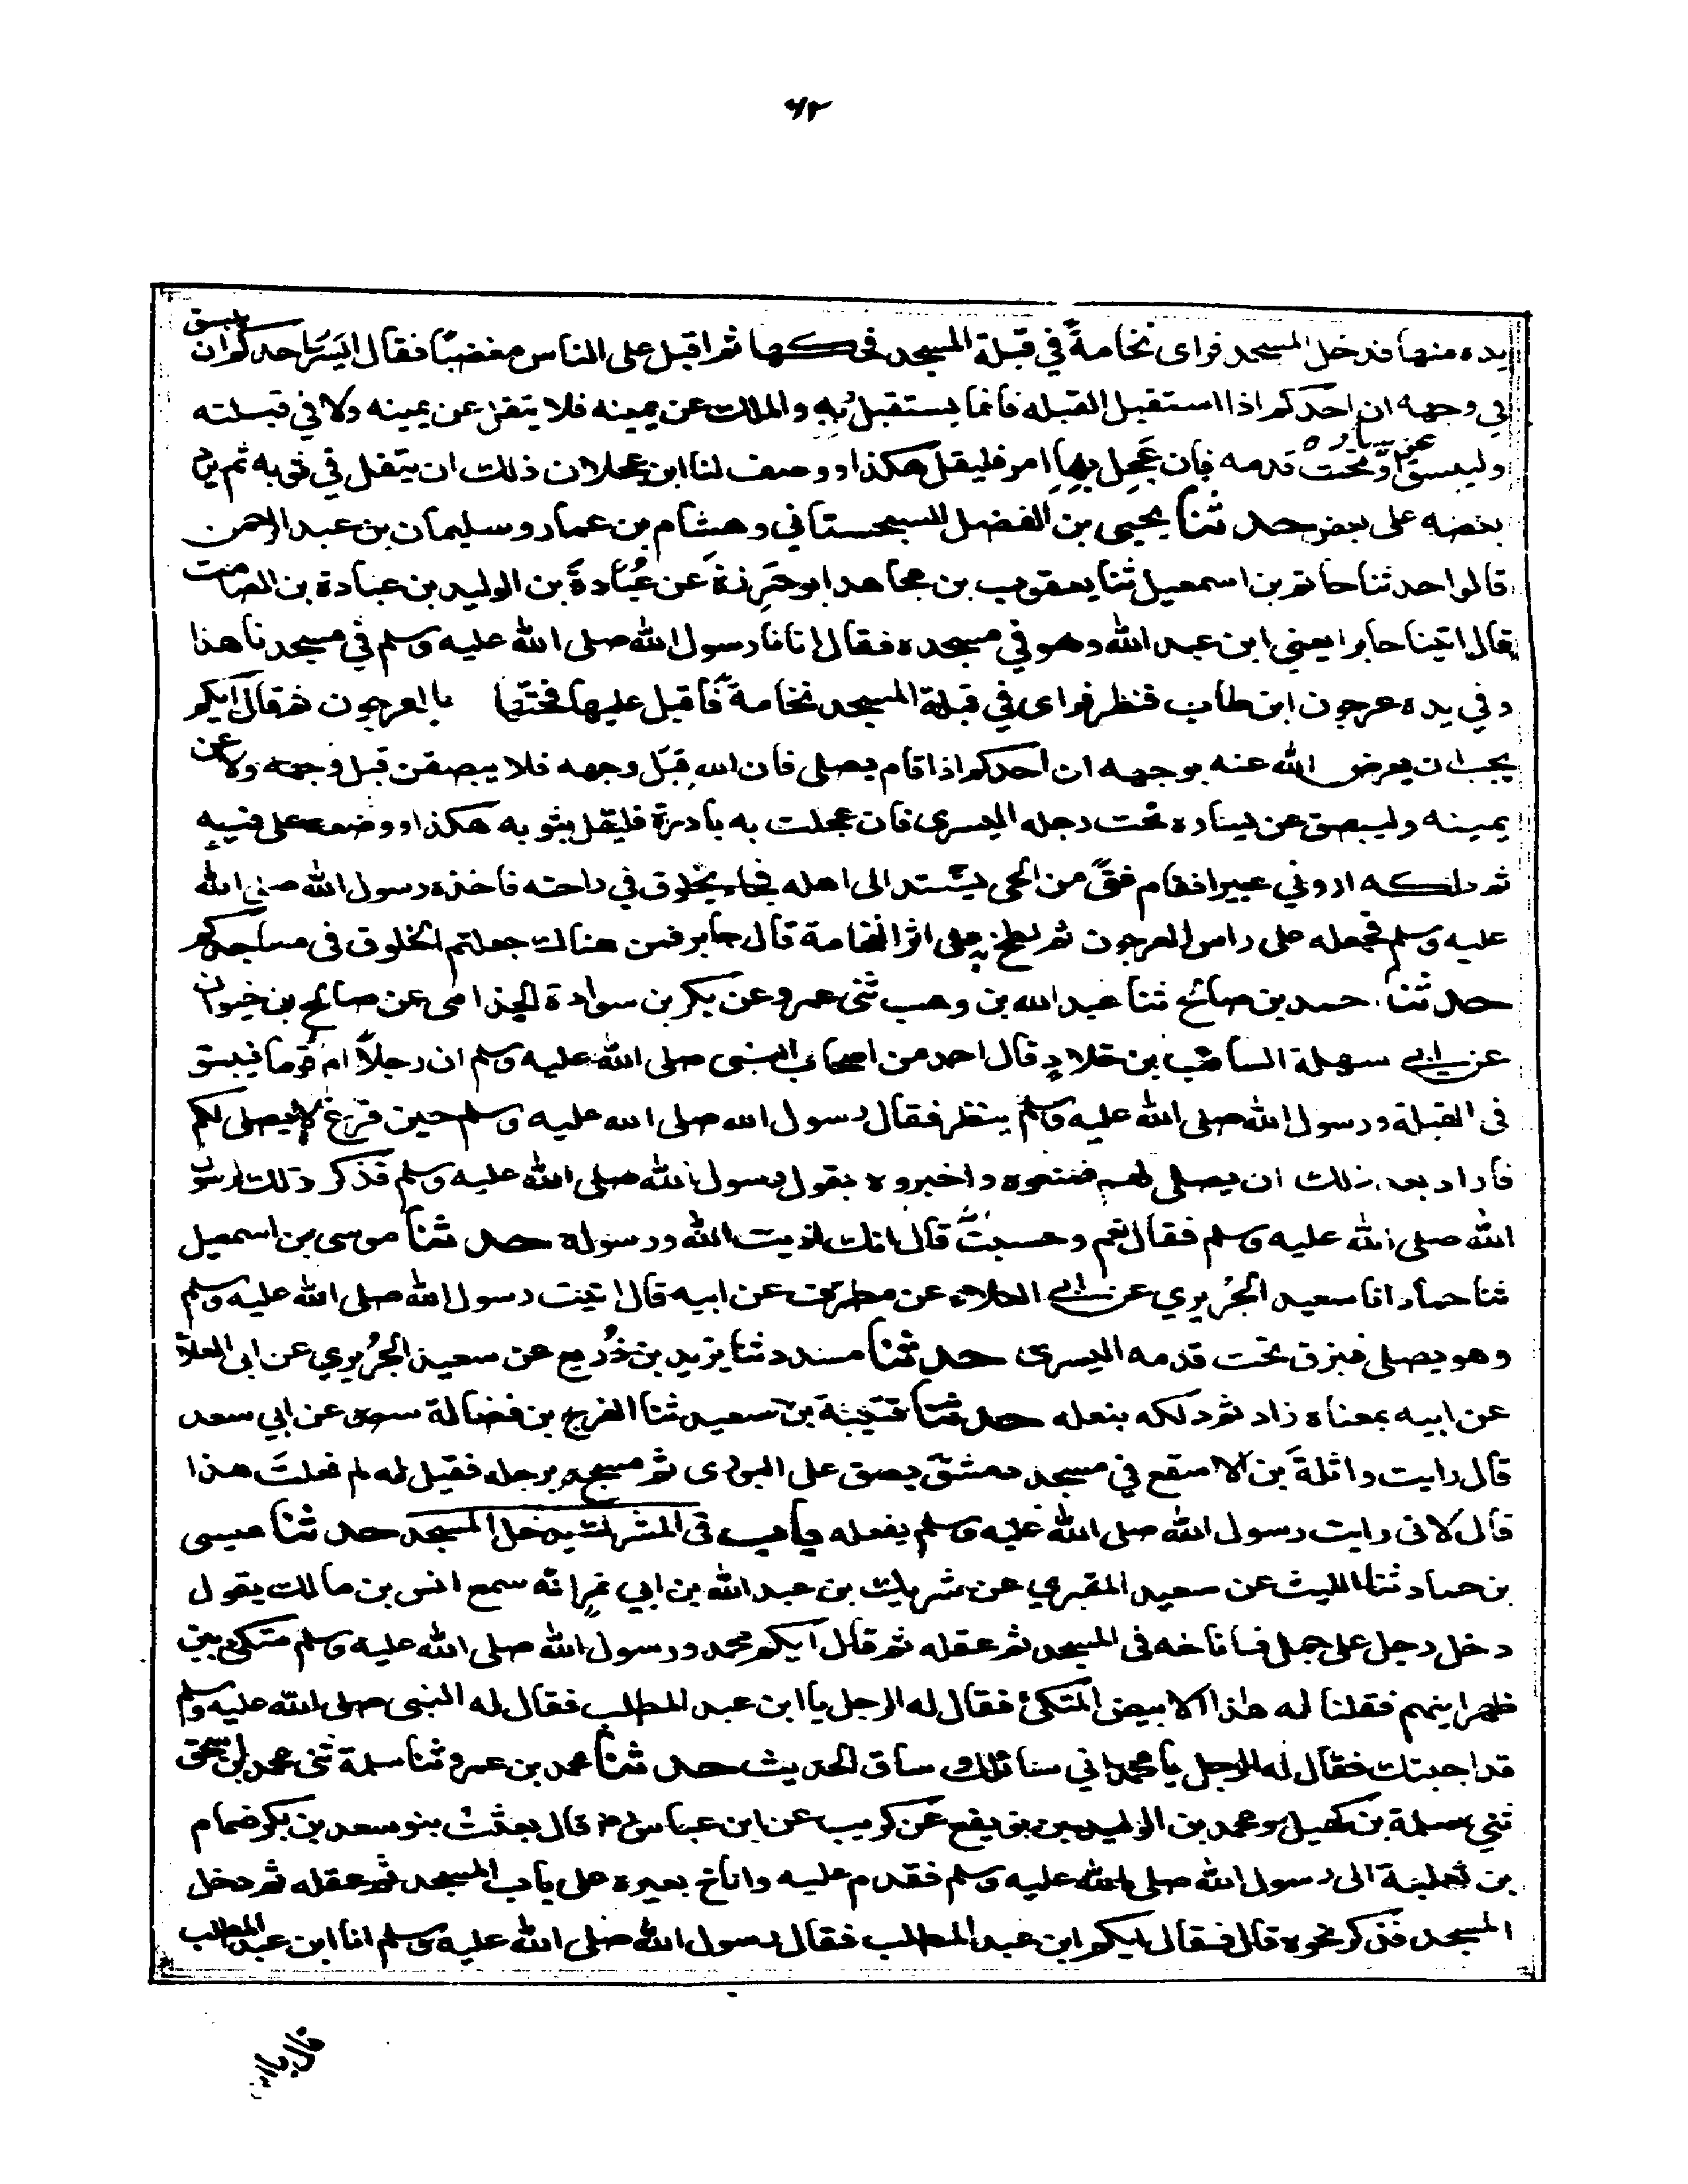 ٦٢
يده منها فدخل المسجد فراى نخامةً في قبلة المسجد فحكها ثم اقبل على الناس مغضبًا فقال ايَسُرّ احدكم ان يبسق
في وجهه ان احدكم اذا استقبل القبله فانما يستقبل ربه والملك عن يمينه فلا يتفل عن يمينه ولا في قبلته
وليبسق عن يساره او تحت قدمه فان عَجِل به امر فليقل هكذا ووصف لنا ابن عجلان ذلك ان يتفل في ثوبه ثم يرد
بعضه على بعض حدثنا يحيى بن الفضل السجستاني وهشام بن عمار وسليمان بن عبد الرحمن
قالوا حدثنا حاتم بن اسمعيل ثنا يعقوب بن مجاهد ابو حَزرة عن عُبادةَ بن الوليد بن عبادة بن الصامت
قال اتينا جابرا يعني ابن عبد الله وهو في مسجده فقال اتانا رسول الله صلى الله عليه وسلم في مسجدنا هذا
وفي يده عرجون ابن طاب فنظر فراى في قبلة المسجد نخامةً فاقبل عليها فحتّها بالعرجون ثم قال ايكم
يحب ان يعرض الله عنه بوجهه ان احدكم اذا قام يصلي فان الله قِبَل وجهه فلا يبصقن قبل وجهه ولا عن
يمينه وليبصق عن يساره تحت رجله اليسرى فان عجلت به بادرة فليقل بثوبه هكذا ووضعه على فيه
ثم دلكه اروني عبيرا فقام فتًى من الحي يشتد الى اهله فجاء بخلوق في راحته فاخذه رسول الله صلى الله
عليه وسلم فجعله على راس العرجون ثم لطخ به على اثر النخامة قال جابر فمن هناك جعلتم الخلوق في مساجدكم
حدثنا احمد بن صالح ثنا عبد الله بن وهب ثنى عمرو عن بكر بن سوادة الجذامى عن صالح بن خيوان
عن ابي سهلة السائب بن خلادٍ قال احمد من اصحاب النبي صلى الله عليه وسلم ان رجلًا ام قوما فبسق
فى القبلة ورسول الله صلى الله عليه وسلم ينظر فقال رسول الله صلى الله عليه وسلم حين فرغ لا يصلي لكم
فاراد بعد ذلك ان يصلي لهم فمنعوه واخبروه بقول رسول الله صلى الله عليه وسلم فذكر ذلك لرسول
الله صلى الله عليه وسلم فقال نعم وحسبتُ قال انك اذيت الله ورسوله حدثنا موسى بن اسمعيل
ثنا حماد انا سعيد الجُريري عن ابي العلاء عن مطرف عن ابيه قال اتيت رسول الله صلى الله عليه وسلم
وهو يصلى فبزق تحت قدمه اليسرى حدثنا مسدد ثنا يزيد بن زُريع عن سعيد الجُريري عن ابى العلاء
عن ابيه بمعناه زاد ثم دلكه بنعله حدثنا قتيبة بن سعيد ثنا الفرج بن فضالة عن ابي سعد
قال رايت واثلةَ بن الاسقع في مسجد دمشق بصق على البوري ثم مسحه برجله فقيل له لم فعلتَ هذا
قال لانى رايت رسول الله صلى الله عليه وسلم يفعله باب فى المشرك يدخل المسجد حدثنا عيسى
بن حماد ثنا الليث عن سعيد المقبري عن شريك بن عبد الله بن ابي نمرٍ انه سمع انس بن مالك يقول
دخل رجل على جمل فاناخه فى المسجد ثم عقله ثم قال ايكم محمد ورسول الله صلى الله عليه وسلم متكئ بين
ظهرانيهم فقلنا له هذا الابيض المتكئ فقال له الرجل يا ابن عبد المطلب فقال له النبي صلى الله عليه وسلم
قد اجبتك فقال له الرجل يا محمد اني سائلك وساق الحديث حدثنا محمد بن عمرو ثنا سلمة ثنى محمد بن اسحق
ثني سلمة بن كهيل ومحمد بن الوليد بن نويفع عن كريب عن ابن عباس قال بعثت بنو سعد بن بكر ضمام
بن ثعلبة الى رسول الله صلى الله عليه وسلم فقدم عليه واناخ بعيره على باب المسجد ثم عقله ثم دخل
المسجد فذكر نحوه قال فقال ايكم ابن عبد المطلب فقال رسول الله صلى الله عليه وسلم انا ابن عبد المطلب
قال يا ابن